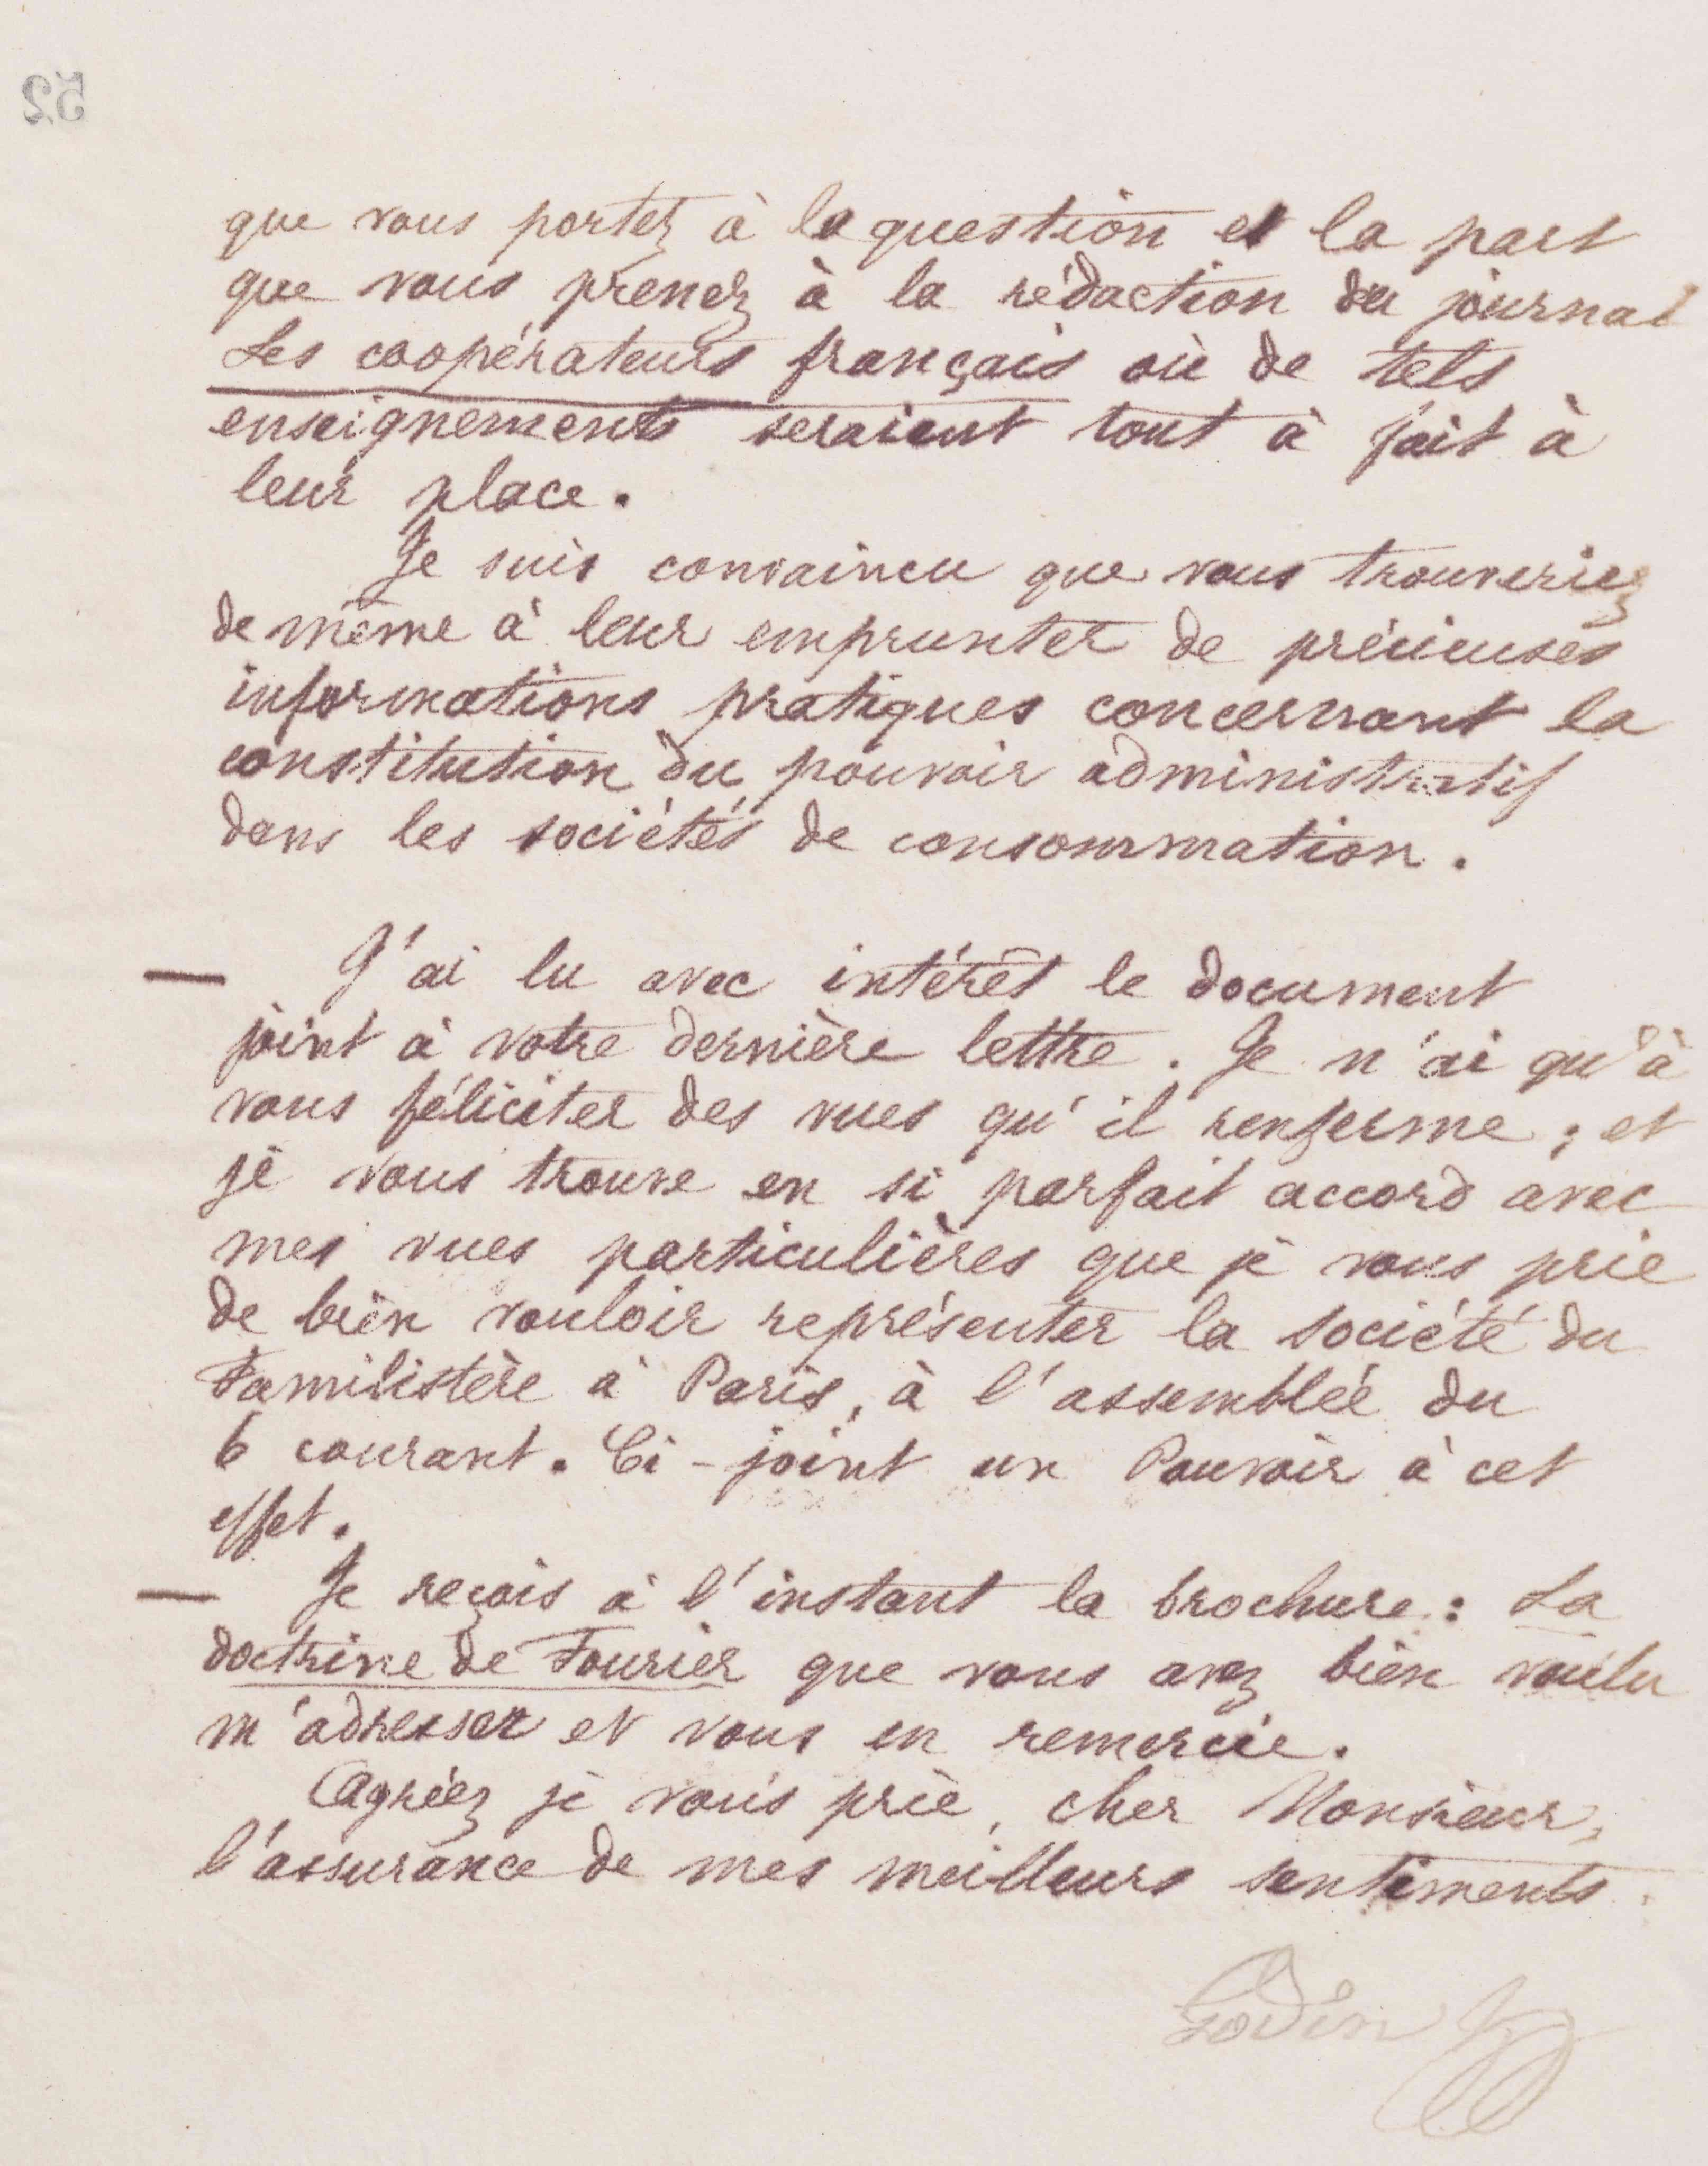 52
que vous portez à la question et la part
que vous prenez à la rédaction du journal
Les coopérateurs français où de tels
enseignements seraient tout à fait à
leur place.
Je suis convaincu que vous trouveriez
de même à leur emprunter de précieuses
informations pratiques concernant la
constitution du pouvoir administratif
dans les sociétés de consommation.
— J'ai lu avec intérêt le document
joint à votre dernière lettre. Je n'ai qu'à
vous féliciter des vues qu'il renferme ; et
je vous trouve en si parfait accord avec
mes vues particulières que je vous prie
de bien vouloir représenter la société du
Familistère à Paris, à l'assemblée du
6 courant. Ci-joint un Pouvoir à cet
effet.
— Je reçois à l'instant la brochure : La
doctrine de Fourier que vous avez bien voulu
m'adresser et vous en remercie.
Agréez je vous prie, cher Monsieur,
l'assurance de mes meilleurs sentiments.
Godin